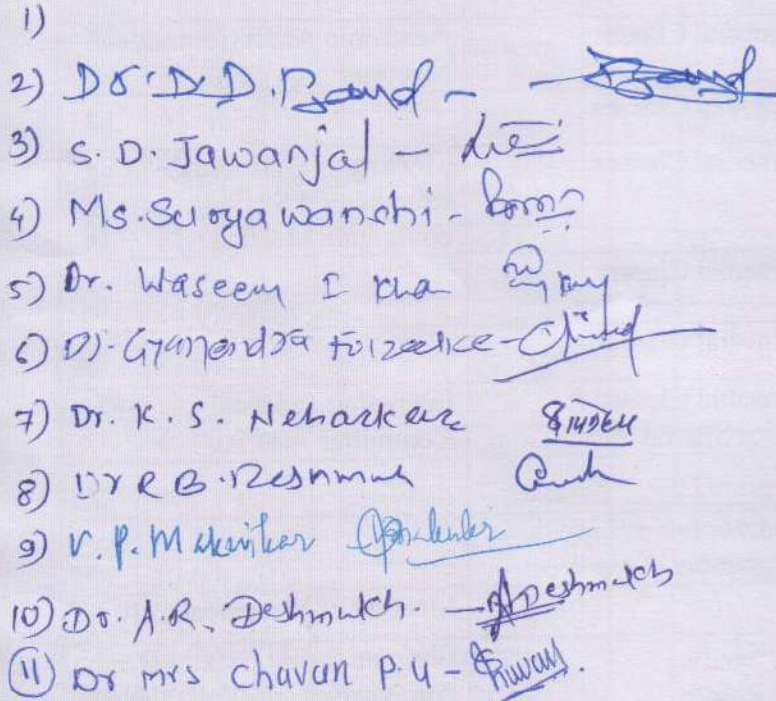 1)
2) Dr. D D. Band -  Band
3) S. D. Jawanjal -
4) Ms. Suryawanshi -
5) Dr. Waseem I Khan
6) Dr. Gyanendra -
7) Dr. K. S. Neharkar
8) Dr R B. Deshmukh
9) V. P. Makarikar
10) Dr. A. R. Deshmukh. - ARDeshmukh
11) Dr mrs Chavan P. U - Chavan.